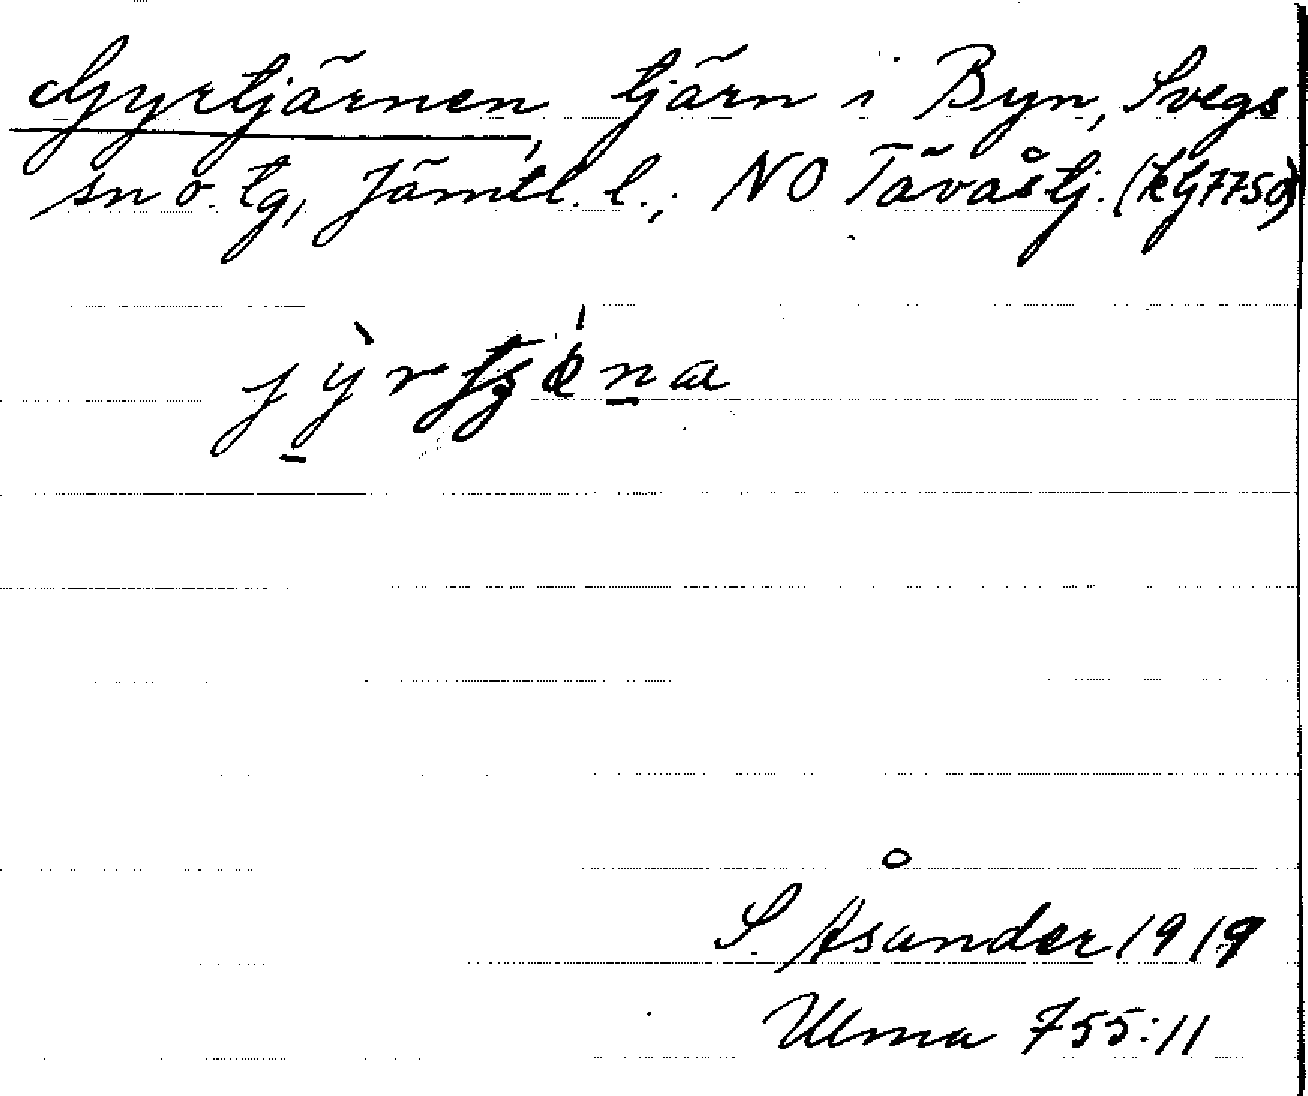 Gyrtjärnen, tjärn i Byn, Svegs
sn o. tg, Jämtl. l.; NO Tävåstj. (kg7750)
S. Åsander 1919
Ulma 755:11